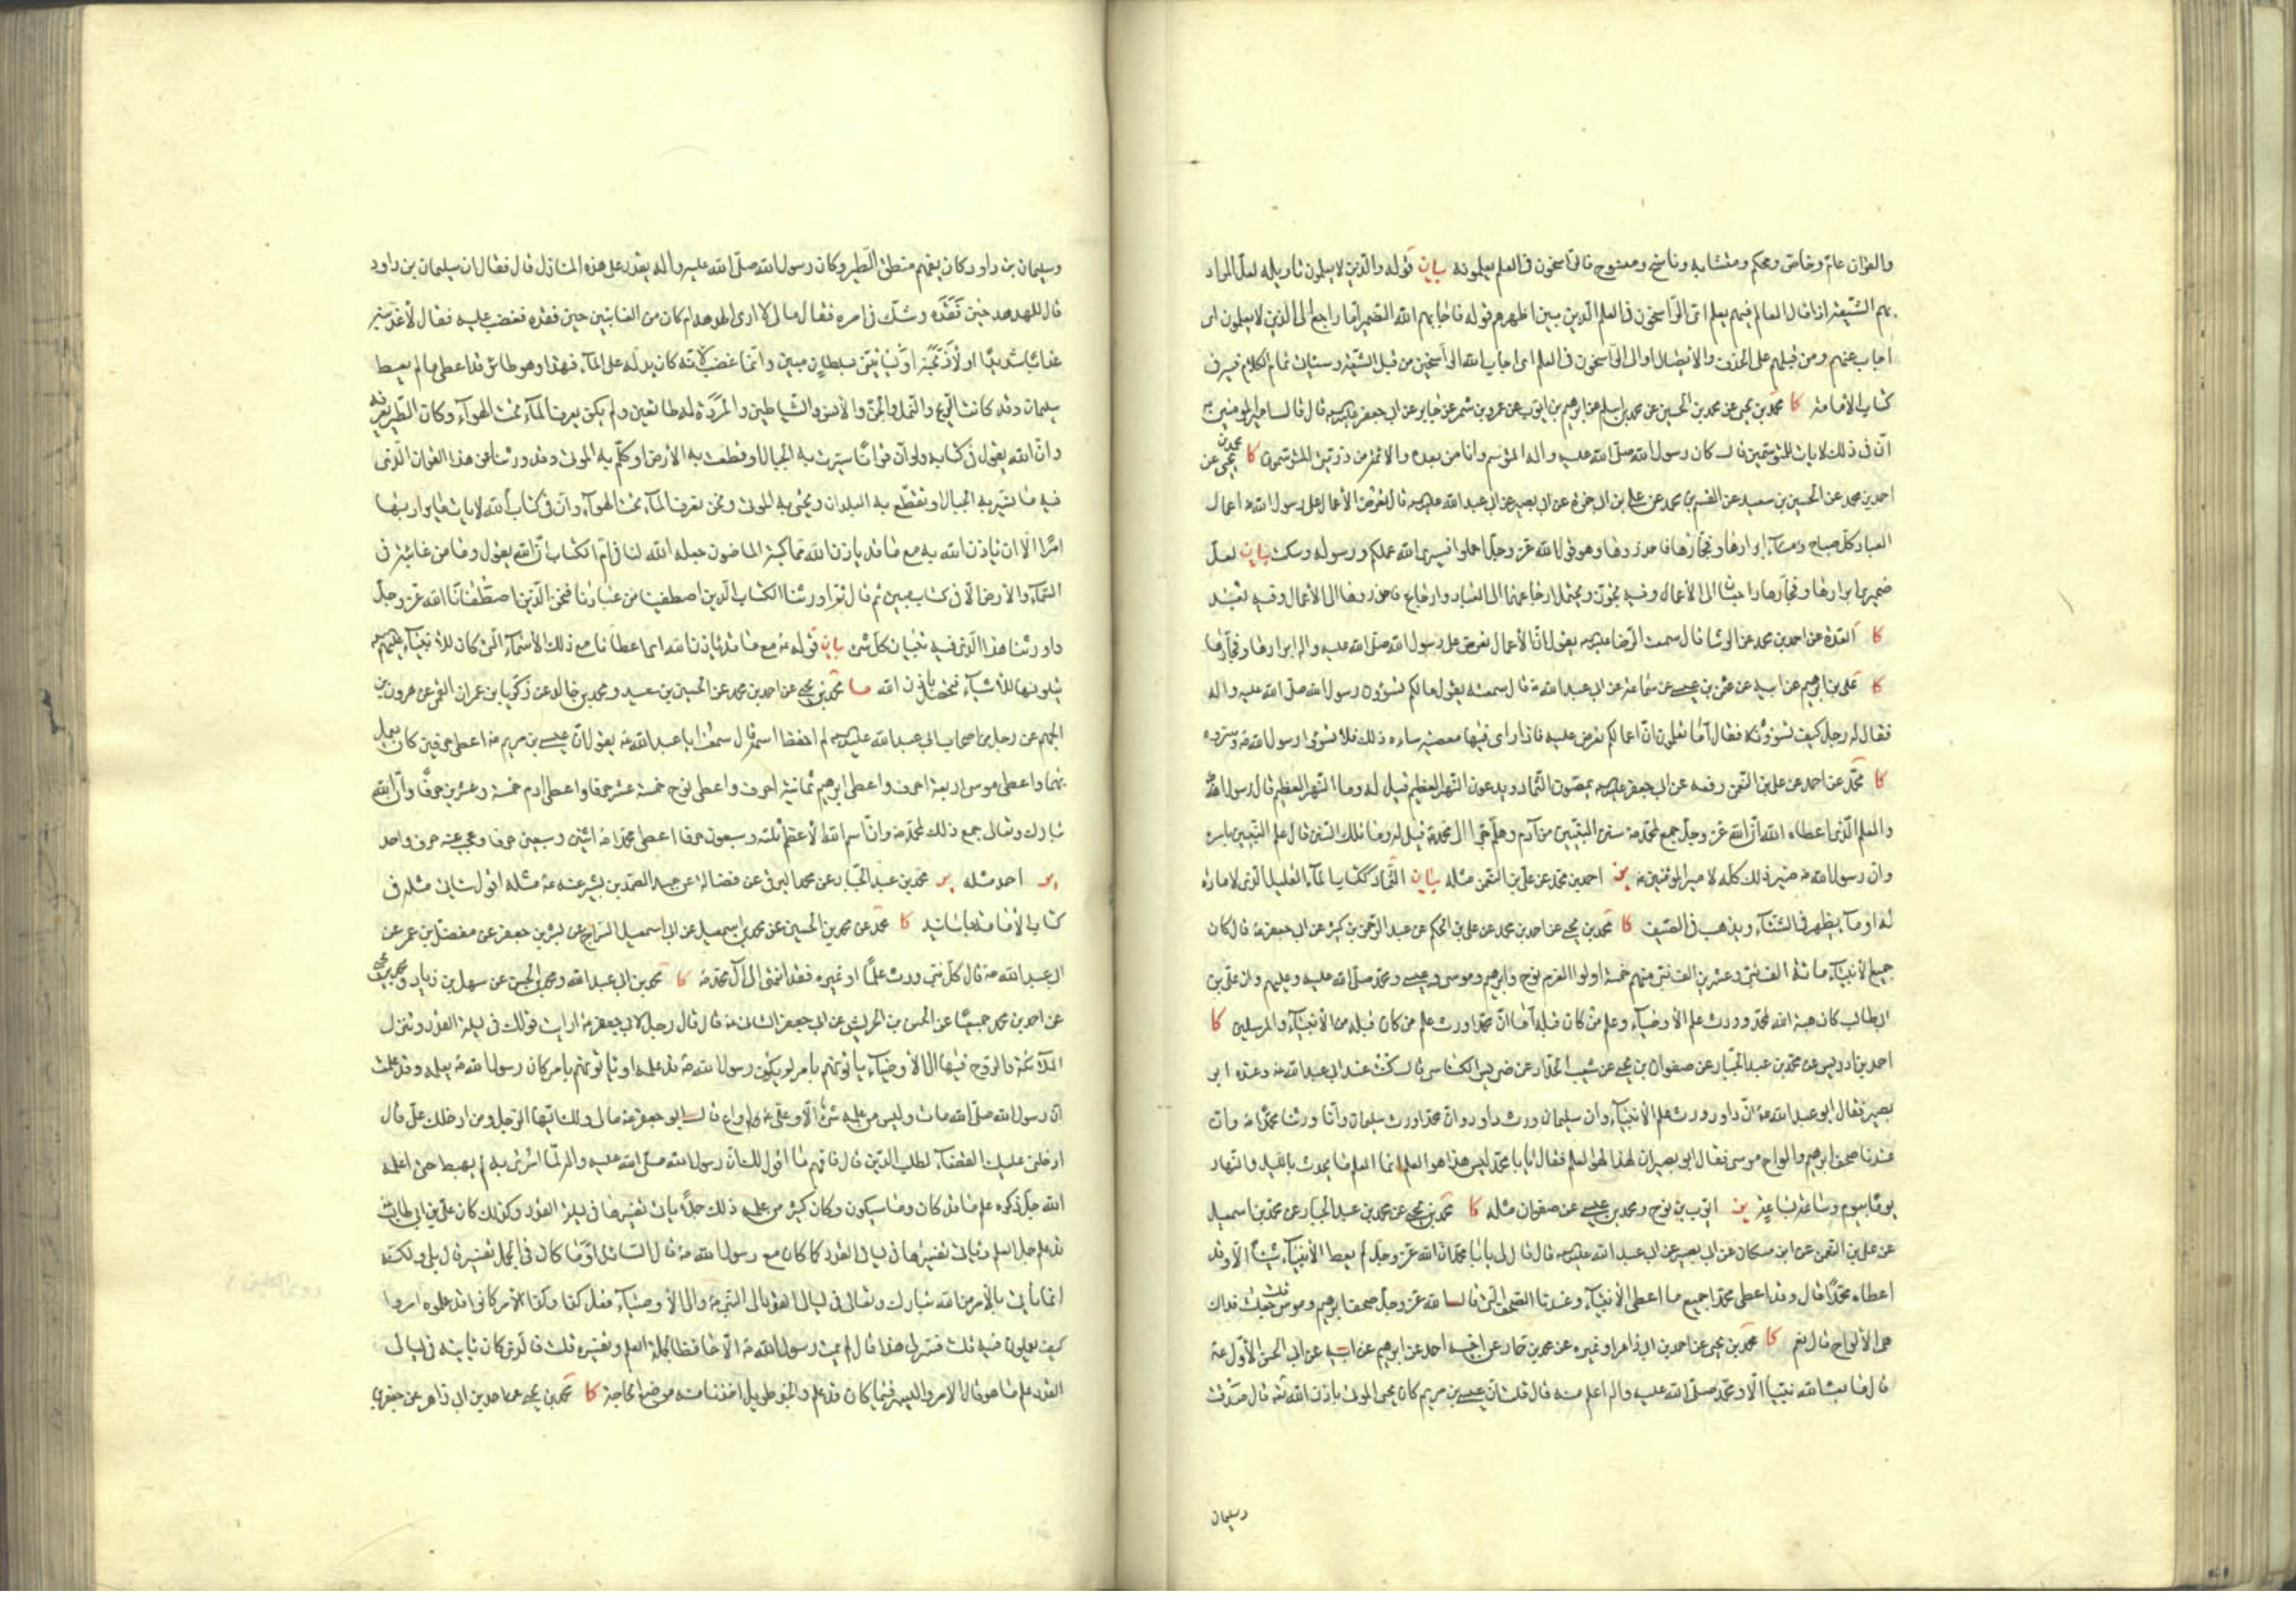 والقران عام وخاص ومحكم ومتشابه وناسخ ومنسوخ فالراسخون فى العلم يعلمونه بيان قوله والذين لا يعلمون تاويله لعل المراد
بهم الشيعة اذا قال العالم فيهم بعلم اى الراسخون فى العلم الذين بين اظهرهم قوله فاجابهم الله الضمير اما راجع الى الذين لا يعلمون اى
اجاب عنهم ومن قبلهم على الحذف والايصال او الى الراسخون فى العلم اى اجاب الله الراسخين من قبل الشيعة وسياتى تمام الكلام فيه فى
كتاب الامامة كا محمد بن يحيى عن محمد بن الحسين عن محمد بن اسلم عن ابرهيم بن ايوب عن عمرو بن شمر عن جابر عن ابى جعفر عليه السلم قال قال امير المومنين
ان فى ذلك لايات للمتوسمين قال كان رسول الله صلى الله عليه واله المتوسم وانا من بعده والائمة من ذريتى المتوسمون كا محمد بن يحيى عن
احمد بن محمد عن الحسين بن سعيد عن القسم بن محمد عن على بن ابى حمزة عن ابى بصير عن ابى عبد الله عليه السلم قال تعرض الاعمال على رسول الله ص اعمال
العباد كل صباح ومساء ابرارها وفجارها فاحذروها وهو قول الله عز وجل اعملوا فسيرى الله عملكم ورسوله وسكت بيان لعل
ضمير ابرارها وفجارها راجعان الى الاعمال وفيه تجوز ويحتمل ارجاعهما الى العباد وارجاع فاحذروها الى الاعمال وفيه بعد
كا العدة عن احمد بن محمد عن الوشا قال سمعت الرضا عليه السلم يقول ان الاعمال تعرض على رسول الله صلى الله عليه واله ابرارها وفجارها
كا على بن ابرهيم عن ابيه عن عثمن بن عيسى عن سماعة عن ابى عبد الله ع قال سمعته يقول ما لكم تسوؤن رسول الله صلى الله عليه واله
فقال له رجل كيف نسوؤه فقال اما تعلمون ان اعمالكم تعرض عليه فاذا راى فيها معصية ساءه ذلك فلا تسوؤا رسول الله ص وسروه
كا محمد عن احمد عن على بن النعمن رفعه عن ابى جعفر عليه السلم يمصون الثماد ويدعون النهر العظيم قيل له وما النهر العظيم قال رسول الله
والعلم الذى اعطاه الله ان الله عز وجل جمع لمحمد ص سنن النبيين من ادم وهلم جرا الى محمد ص قيل له وما تلك السنن قال علم النبيين باسره
وان رسول الله ص صير ذلك كله لامير المؤمنين ع ير احمد بن محمد عن على بن النعمن مثله بيان الثماد ككتاب الماء القليل الذى لا مادة
له او ما يظهر فى الشتاء ويذهب فى الصيف كا محمد بن يحيى عن احمد بن محمد عن على بن الحكم عن عبد الرحمن بن كثير عن ابى جعفر ع قال كان
جميع الانبياء مائة الف نبى وعشرين الف نبى منهم خمسة اولوا العزم نوح وابرهيم وموسى وعيسى ومحمد صلى الله عليه وعليهم وان على بن
ابى طالب كان هبة الله لمحمد وورث علم الاوصياء وعلم من كان قبله اما ان محمدا ورث علم من كان قبله من الانبياء والمرسلين كا
احمد بن ادريس عن محمد بن عبد الجبار عن صفوان بن يحيى عن شعيب الحداد عن ضريس الكناسى قال كنت عند ابى عبد الله ع وعنده ابو
بصير فقال ابو عبد الله ع ان داود ورث علم الانبياء وان سليمان ورث داود وان محمدا ورث سليمان وانا ورثنا محمدا ص وان
عندنا صحف ابرهيم والواح موسى فقال ابو بصير ان هذا لهو العلم فقال يا با محمد ليس هذا هو العلم انما العلم ما يحدث بالليل والنهار
يوما بيوم وساعة بساعة ير ايوب بن نوح ومحمد بن عيسى عن صفوان مثله كا محمد بن يحيى عن محمد بن عبد الجبار عن محمد بن اسمعيل
عن على بن النعمن عن ابن مسكان عن ابى بصير عن ابى عبد الله عليه السلم قال قال لى يا با محمد ان الله عز وجل لم يعط الانبياء شيئا الا وقد
اعطاه محمدا قال وقد اعطى محمدا جميع ما اعطى الانبياء وعندنا الصحف التى قال الله عز وجل صحف ابرهيم وموسى قلت جعلت فداك
هى الالواح قال نعم كا محمد بن يحيى عن احمد بن ابى زاهر او غيره عن محمد بن حماد عن اخيه احمد عن ابرهيم عن ابيه عن ابى الحسن الاول ع
قال ما بعث الله نبيا الا ومحمد صلى الله عليه واله اعلم منه قال قلت ان عيسى بن مريم كان يحيى الموتى باذن الله قال صدقت
وسليمان
وسليمان بن داود كان يفهم منطق الطير وكان رسول الله صلى الله عليه واله يقدر على هذه المنازل قال فقال ان سليمان بن داود
قال للهدهد حين تفقده وشك فى امره فقال ما لى لا ارى الهدهد ام كان من الغائبين حين فقده فغضب عليه فقال لاعذبنه
عذابا شديدا او لاذبحنه او لياتينى بسلطان مبين وانما غضب لانه كان يدله على الماء فهذا وهو طائر قد اعطى ما لم يعط
سليمان وقد كانت الريح والنمل والجن والانس والشياطين والمردة له طائعين ولم يكن يعرف الماء تحت الهواء وكان الطير يعرفه
وان الله يقول فى كتابه ولو ان قرانا سيرت به الجبال او قطعت به الارض او كلم به الموتى وقد ورثنا نحن هذا القران الذى
فيه ما تسير به الجبال وتقطع به البلدان ويحيى به الموتى ونحن نعرف الماء تحت الهواء وان فى كتاب الله لايات ما يراد بها
امر الا ان ياذن الله به مع ما قد ياذن الله مما كتبه الماضون جعله الله لنا فى ام الكتاب ان الله يقول وما من غائبة فى
السماء والارض الا فى كتاب مبين ثم قال ثم اورثنا الكتاب الذين اصطفينا من عبادنا فنحن الذين اصطفانا الله عز وجل
واورثنا هذا الذى فيه تبيان كل شى بيان قوله ع مع ما قد ياذن الله اى اعطانا مع ذلك الاسماء التى كان للانبياء عليهم السلم
يتلونها للاشياء فتحصل باذن الله كا محمد بن يحيى عن احمد بن محمد عن الحسين بن سعيد ومحمد بن خالد عن زكريا بن عمران القمى عن هرون بن
الجهم عن رجل من اصحاب ابى عبد الله عليه السلم لم احفظ اسمه قال سمعت ابا عبد الله ع يقول ان عيسى بن مريم ع اعطى حرفين كان يعمل
بهما واعطى موسى اربعة احرف واعطى ابرهيم ثمانية احرف واعطى نوح خمسة عشر حرفا واعطى ادم خمسة وعشرين حرفا وان الله
تبارك وتعالى جمع ذلك لمحمد ص وان اسم الله الاعظم ثلثة وسبعون حرفا اعطى محمدا ص اثنين وسبعين حرفا وحجب عنه حرف واحد
ير احمد مثله ير محمد بن عبد الجبار عن محمد البرقى عن فضالة عن عبد الصمد بن بشير عنه ع مثله اقول سياتى مثله فى
كتاب الامامة باسانيد كا محمد عن محمد بن الحسين عن محمد بن اسمعيل عن ابى اسمعيل السراج عن بشر بن جعفر عن مفضل بن عمر عن
ابى عبد الله ع قال كل نبى ورث علما او غيره فقد انتهى الى ال محمد ص كا محمد بن ابى عبد الله ومحمد بن الحسن عن سهل بن زياد ومحمد بن يحيى
عن احمد بن محمد جميعا عن الحسن بن الحريش عن ابى جعفر الثانى ع قال قال رجل لابى جعفر ع ارايت قولك فى ليلة القدر وتنزل
الملائكة والروح فيها الى الاوصياء ياتونهم بامر لم يكن رسول الله ص قد علمه او ياتونهم بامر كان رسول الله ص يعلمه وقد علمت
ان رسول الله صلى الله مات وليس من علمه شئ الا وعلى ع له واع قال ابو جعفر ع ما لى ولك ايها الرجل ومن ادخلك على قال
ادخلنى عليك القضاء لطلب الدين قال فافهم ما اقول لك ان رسول الله صلى الله عليه واله لما اسرى به لم يهبط حتى اعلمه
الله جل ذكره علم ما قد كان وما سيكون وكان كثير من علمه ذلك جملا ياتى تفسيرها فى ليلة القدر وكذلك كان على بن ابى طالب
قد علم جمل العلم وياتى تفسيرها فى ليالى القدر كما كان مع رسول الله ص قال السائل او ما كان فى الجمل تفسير قال بلى ولكنه
انما ياتى بالامر من الله تبارك وتعالى فى ليالى القدر الى النبى ص والى الاوصياء افعل كذا وكذا لامر كانوا قد علموه امروا
كيف يعملون فيه قلت فسر لى هذا قال لم يمت رسول الله ص الا حافظا لجملة العلم وتفسيره قلت فالذى كان ياتيه فى ليالى
القدر علم ما هو قال الامر واليسر فيما كان قد علم والخبر طويل اخذنا منه موضع الحاجة كا محمد بن يحيى عن احمد بن ابى زاهر عن جعفر بن